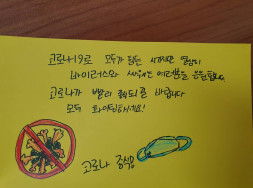 코로나19로 모두가 힘든 시기지만 열심히
바이러스와 싸우는 여러분을 응원합니다.
코로나가 빨리 종식되길 바랍니다
모두 화이팅하세요!
코로나 종식